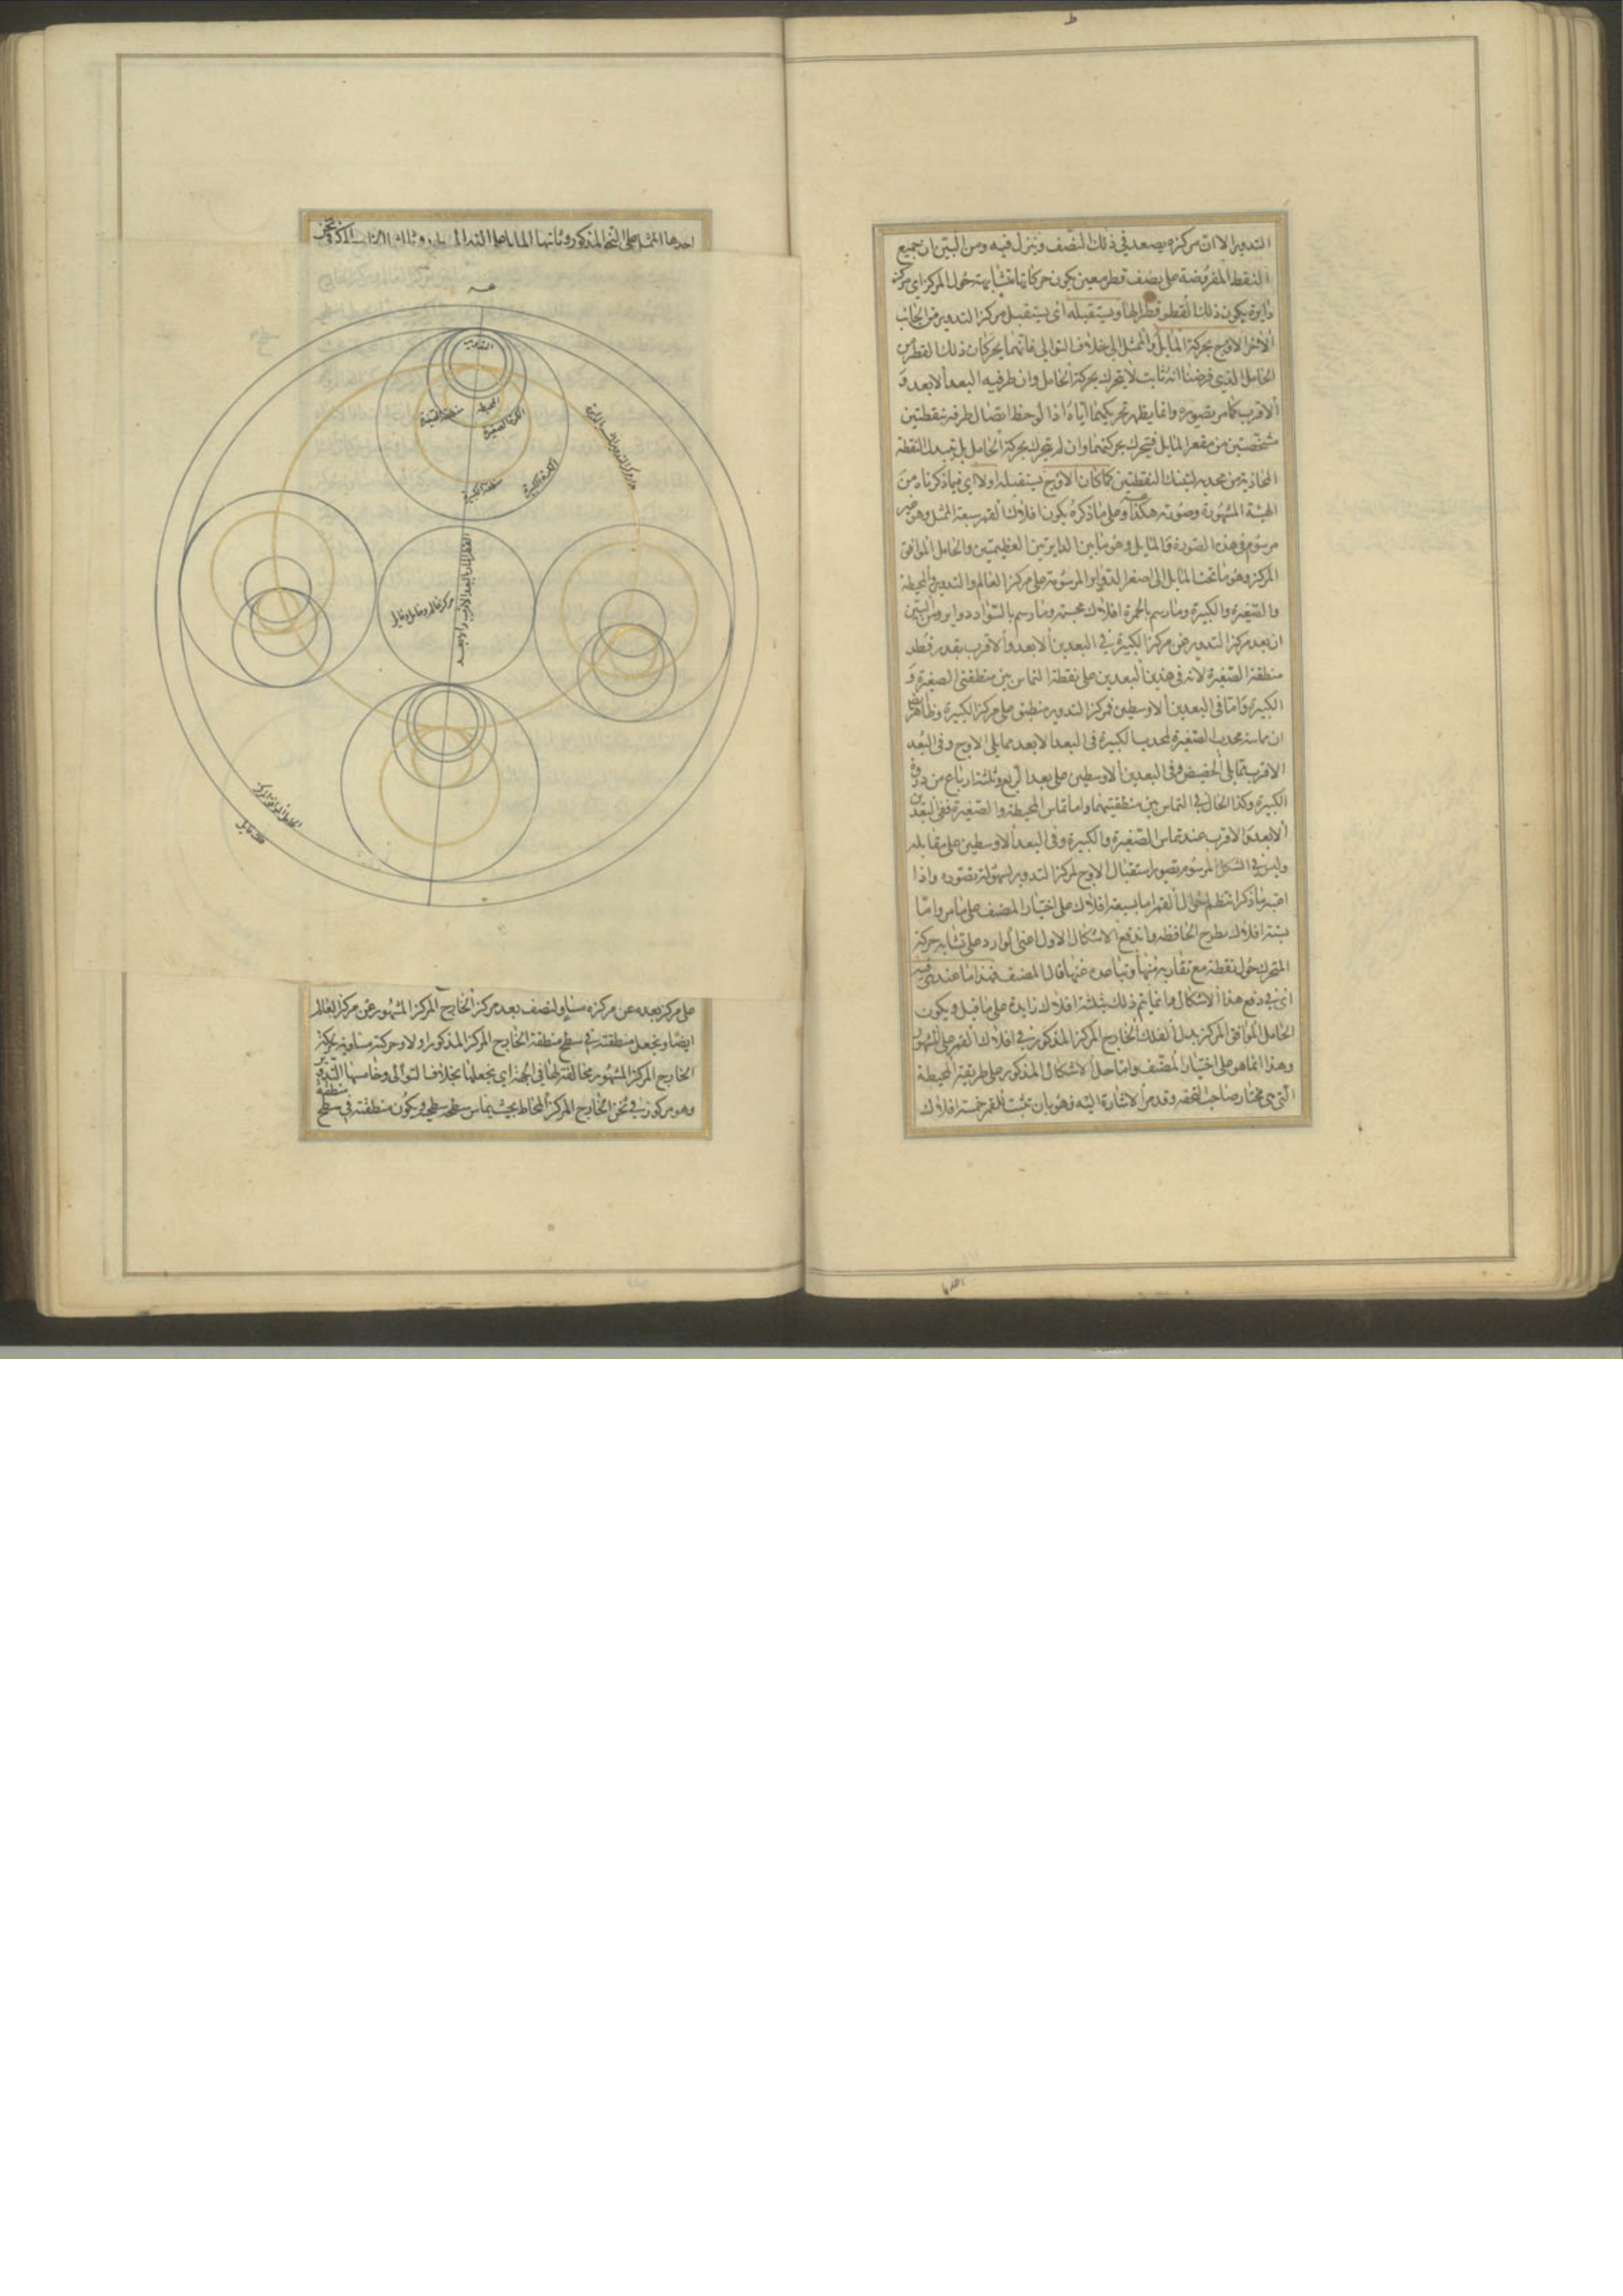 التدوير الا ان مركزه يصعد في ذلك النصف وينزل فيه ومن البين ان جميع
النقط المفروضة على نصف قطر معين يكون حركاتها متشابهة حول المركز اى مركز
دايرة يكون ذلك القطر قطرا لها ويستقبله اى يستقبل مركز التدوير من الجانب
الآخر الاوج بحركة المايل والممثل الى خلاف التوالى فانهما يحركان ذلك القطر من
الحامل الذى فرضنا انه ثابت لا يتحرك بحركة الحامل وان طرفيه البعد الابعد و
الاقرب كما مر تصويره وانما يظهر تحريكهما اياه اذا لوحظ اتصال طرفيه بنقطتين
مشخصتين من مقعر المايل فيتحرك بحركتهما وان لم يتحرك بحركة الحامل بل يتبدل النقطة
المحاذية من محدبه لتينك النقطتين كما كان الاوج يستقبله اولا اى فيما ذكرناه من
الهيئة المشهورة وصورته هكذا وعلى ما ذكره يكون افلاك القمر سبعة الممثل وهو غير
مرسوم في هذه الصورة والمايل وهو ما بين الدايرتين العظيمتين والحامل الموافق
المركز وهو ما تحت المايل الى اصغر الدواير المرسومة على مركز العالم والتدوير والمحيطة
والصغيرة والكبيرة وما رسم بالحمرة افلاك مجسمة وما رسم بالسواد دواير ومن البين
ان بعد مركز التدوير عن مركز الكبيرة في البعدين الابعد والاقرب بقدر قطر
منطقة الصغيرة لانه في هذين البعدين على نقطة التماس بين منطقتى الصغيرة و
الكبيرة واما في البعدين الاوسطين فمركز التدوير منطبق على مركز الكبيرة وظاهر ايضا
ان مماسة محدب الصغيرة لمحدب الكبيرة في البعد الابعد مما يلى الاوج وفي البعد
الاقرب مما يلى الحضيض وفي البعدين الاوسطين على بعد الربع وثلثة ارباع من ذروة
الكبيرة وكذا الحال في التماس بين منطقتيهما واما تماس المحيطة والصغيرة ففى البعدين
الابعد والاقرب عند تماس الصغيرة والكبيرة وفي البعد الاوسطين على مقابله
وليس في الشكل المرسوم تصوير استقبال الاوج لمركز التدوير لسهولة تصوره واذا
اعتبر ما ذكر انتظم احوال القمر اما بسبعة افلاك على اختيار المصنف على ما مر واما
بستة افلاك بطرح الحافظة واندفع الاشكال الاول اعنى الوارد على تشابه حركة
المتحرك حول نقطة مع تقاربه منها وتباعده عنها قال المصنف فهذا ما عندى فيه
اى في دفع هذا الاشكال وانما يتم ذلك بثلثة افلاك زايدة على ما قبل ويكون
الحامل الموافق المركز بدل الفلك الخارج المركز المذكور في افلاك القمر على المشهور
وهذا انما هو على اختيار المصنف واما حل الاشكال المذكور على طريقة المحيطة
التى هى مختار صاحب التحفة وقد مر الاشارة اليه فهو بان نثبت للقمر خمسة افلاك
احدها
احدها الممثل على النحو المذكور وثانيها المايل على
التدوير
المحيطة
منطقة الصغيرة
الكرة الصغيرة
منطقة الكبيرة
الكرة الكبيرة
القطر المار بالبعد الاقرب والابعد
الحامل الموافق المركز
فلك مايل
على مركز بعده عن مركزه مساو لنصف بعد مركز الخارج المركز المشهور عن مركز العالم
ايضا ويجعل منطقته في سطح منطقة الخارج المركز المذكور اولا وحركته مساوية لحركة
الخارج المركز المشهور مخالفة لها في الجهة اى يجعلها بخلاف التوالى وخامسها التدوير
وهو مركوز في ثخن الخارج المركز المحاط بحيث يماس سطحه سطحى ويكون منطقته في سطح
منطقة